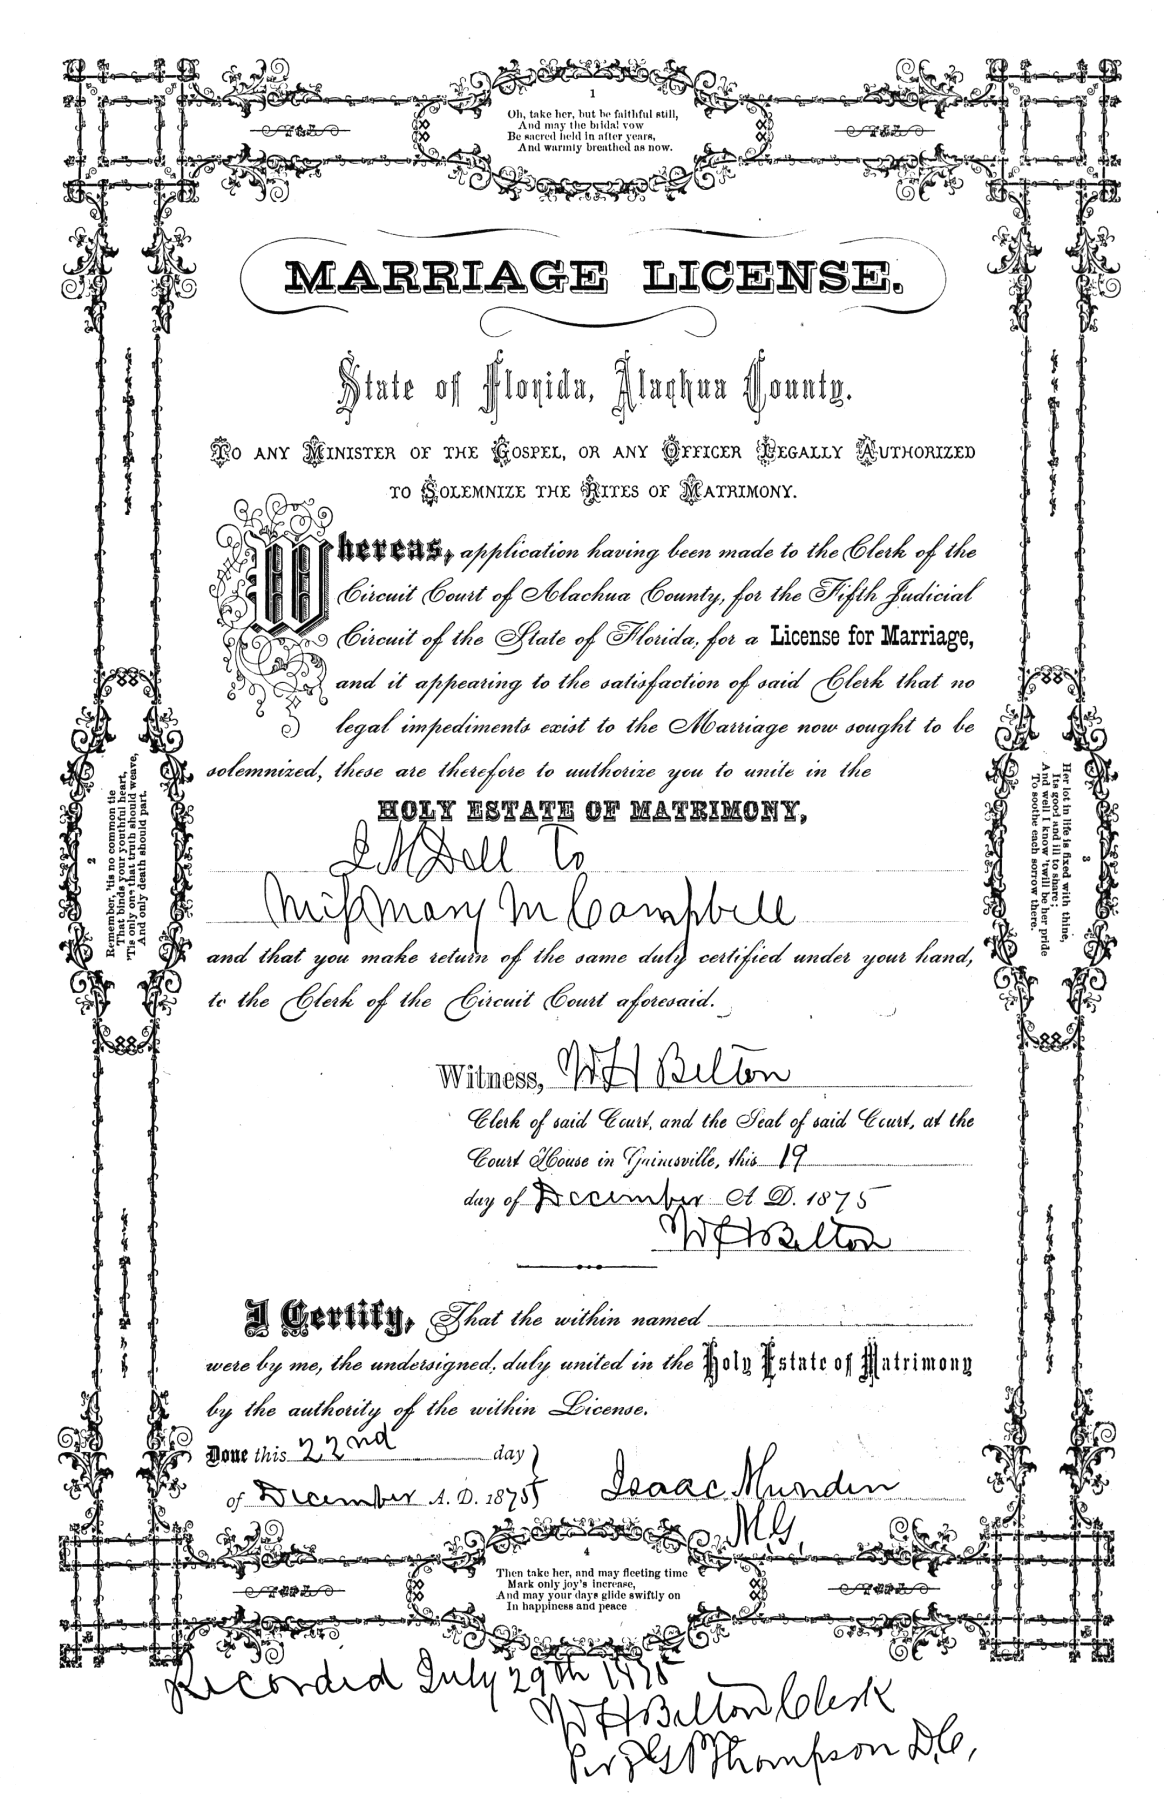 1
Oh, take her, but be faithful still,
And may the bridal vow
Be sacred held in after years,
And warmly breathed as now.
MARRIAGE LICENSE.
State of Florida, Alachua County.
TO ANY MINISTER OF THE GOSPEL, OR ANY OFFICER LEGALLY AUTHORIZED
TO SOLEMNIZE THE RITES OF MATRIMONY.
Whereas, application having been made to the Clerk of the
Circuit Court of Alachua County, for the Fifth Judicial
Circuit of the State of Florida, for a License for Marriage,
and it appearing to the satisfaction of said Clerk that no
legal impediments exist to the Marriage now sought to be
solemnized, these are therefore to authorize you to unite in the
HOLY ESTATE OF MATRIMONY,
J M Dell To
Miss Mary M Campbell
and that you make return of the same duly certified under your hand,
to the Clerk of the Circuit Court aforesaid.
2
Remember, 'tis no common tie
That binds your youthful heart,
'Tis only one that truth should weave,
And only death should part.
3
Her lot in life is fixed with thine,
Its good and ill to share;
And well I know 'twill be her pride
To soothe each sorrow there.
Witness, W H Belton
Clerk of said Court, and the Seal of said Court, at the
Court House in Gainesville, this 19
day of December A D. 1875
W H Belton
I Certify, That the within named
were by me, the undersigned, duly united in the Holy Estate of Matrimony
by the authority of the within License.
Done this 22nd day
of December A. D. 1875
Isaac Munden
M.G.
4
Then take her, and may fleeting time
Mark only joy's increase,
And may your days glide swiftly on
In happiness and peace
Recorded July 29th
W H Belton Clerk
Thompson D.C.,